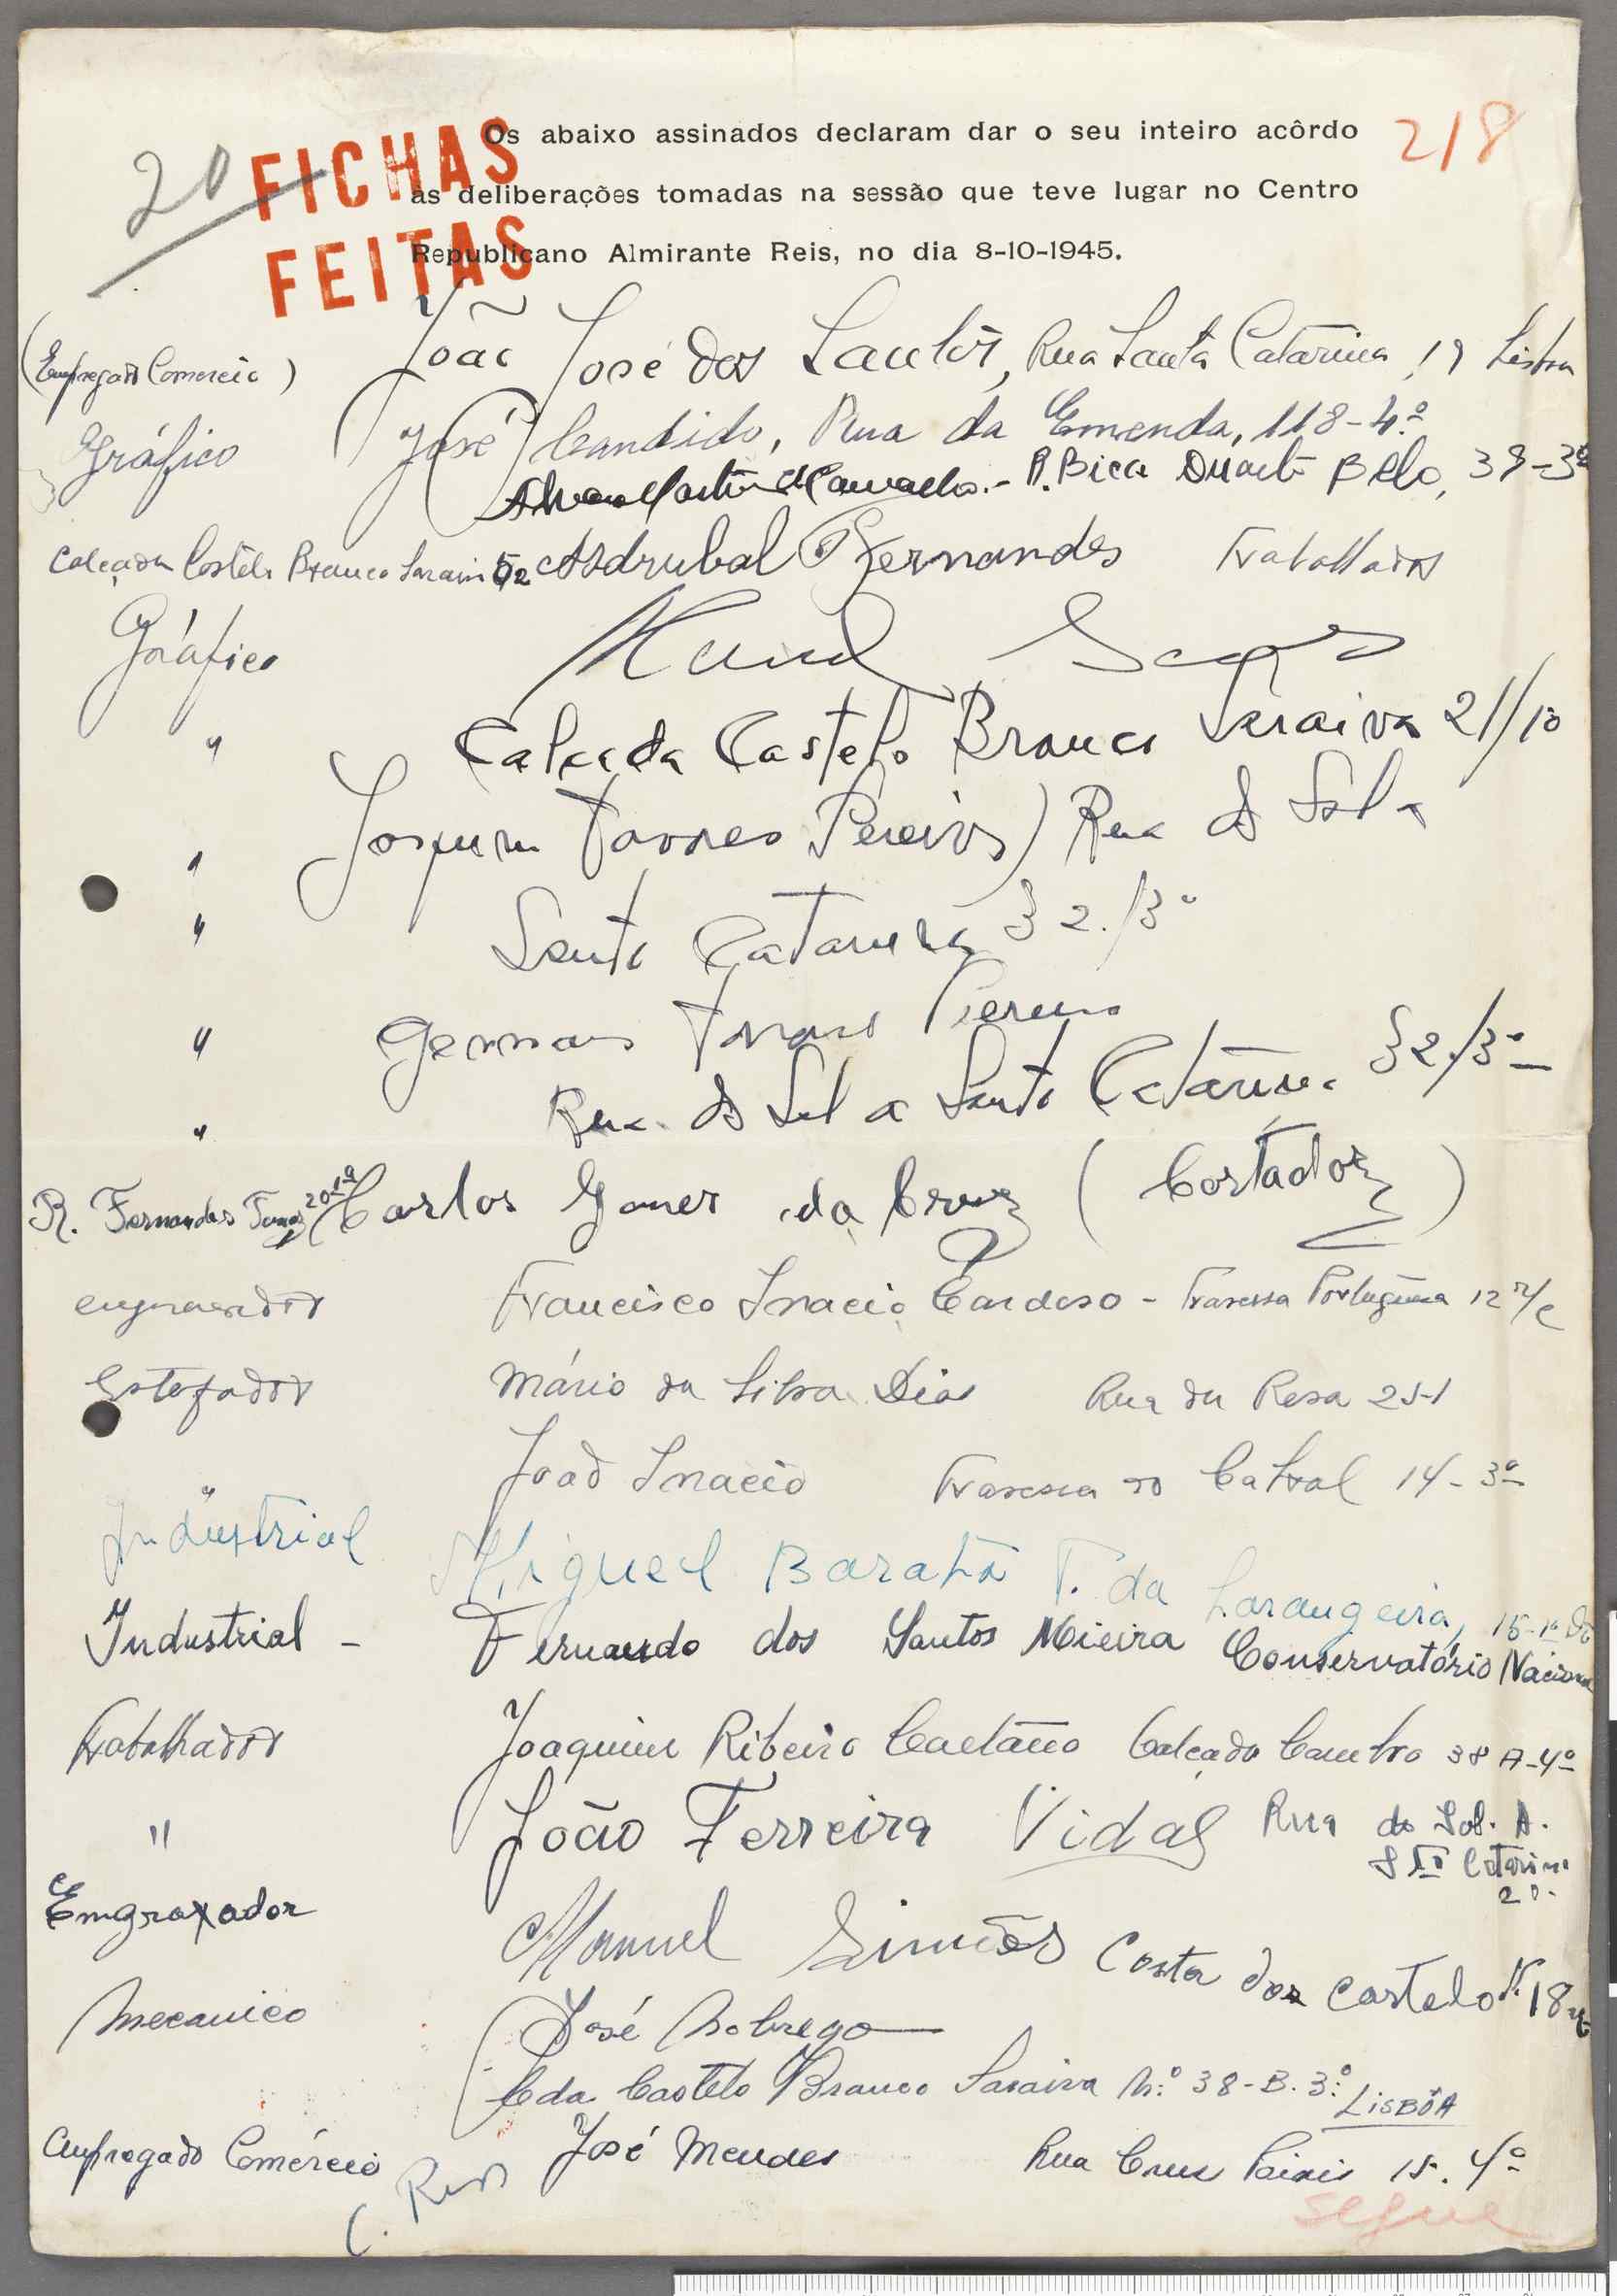 Os abaixo assinados declaram dar o seu inteiro acôrdo 218
20 FICHAS
às deliberações tomadas na sessão que teve lugar no Centro
FEITAS
Republicano Almirante Reis, no dia 8-10-1945.
(Empregado Comercio) João José dos Santos, Rua Santa Catarina, 19 Lisboa
Gráfico José Candido, Rua da Emenda, 118-4.º
Carvalho.- R. Bica Duarte Belo, 39-3º
Calçada Castelo Branco Saraiva 52 Asdrubal Fernandes Trabalhador
Gráfico Manuel
" Calçada Castelo Branco Saraiva 21/10
" Joaquim Tavares Pereira) Rua do Sol a
" Santa Catarina 32./3º
" Germano Tavares Pereira
" Rua do Sol a Santa Catarina 32./3º
R. Fernandes Tomaz 20-1º Carlos Gomes da Cruz (Cortador)
engraxador Francisco Inacio Cardoso - Travessa Portuguesa 12 r/c
Estofador Mário da Silva Dias Rua da Rosa 25-1
" João Inacio Travessa do Cabral 14-3º
Industrial Miguel Barata T. da Larangeira, 15-1º Dº
Industrial - Fernando dos Santos Mieira Conservatório Nacional
Trabalhador Joaquim Ribeiro Caetano Calçada Combro 38 A-4º
" João Ferreira Vidal Rua do Sol. A.
Stª Catarina
20-
Emgraxador Manuel Simões Costa do Castelo N. 18
Mecanico José Nobrega
Cda Castelo Branco Saraiva N.º 38-B.3.º LISBÔA
Empregado Comércio José Mendes Rua Cruz Poiais 15. 4º
C. Reis
segue